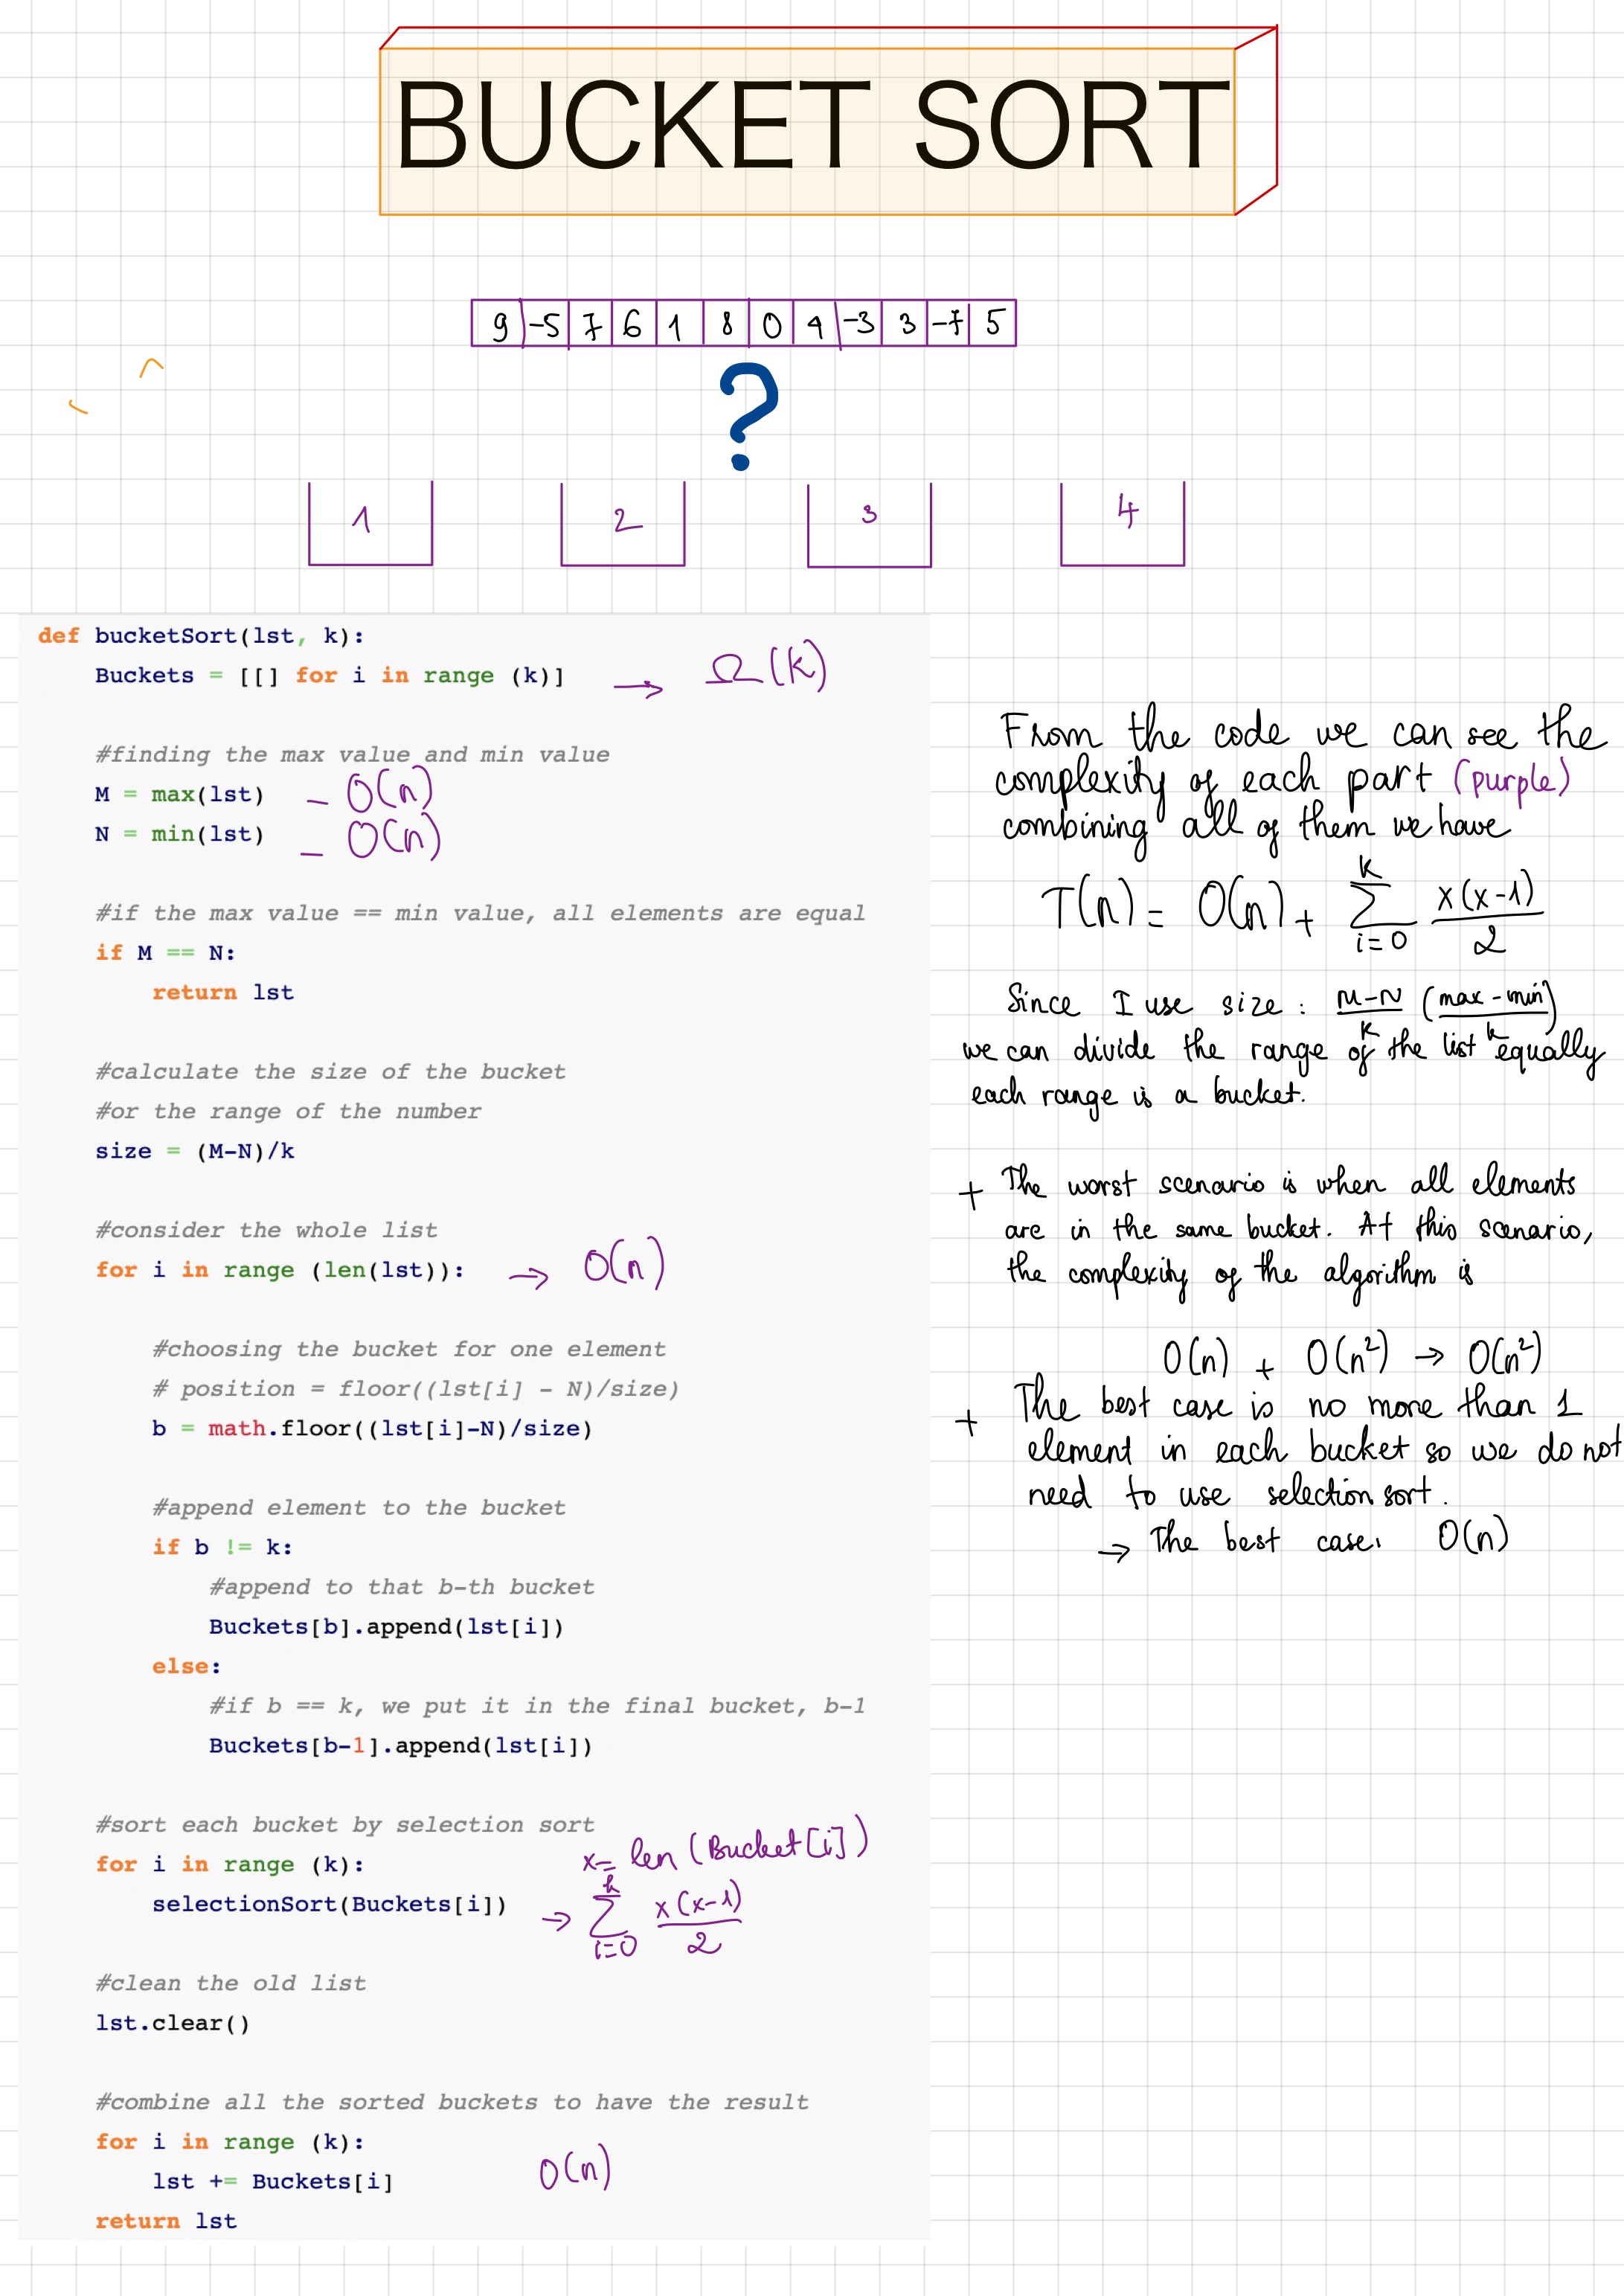 BUCKET SORT
9 -5 7 6 1 8 0 4 -3 3 -7 5
?
1 2 3 4
def bucketSort(lst, k):
Buckets = [[] for i in range (k)] → Ω(k)
#finding the max value and min value
M = max(lst) – O(n)
N = min(lst) – O(n)
#if the max value == min value, all elements are equal
if M == N:
return lst
#calculate the size of the bucket
#or the range of the number
size = (M-N)/k
#consider the whole list
for i in range (len(lst)): → O(n)
#choosing the bucket for one element
# position = floor((lst[i] - N)/size)
b = math.floor((lst[i]-N)/size)
#append element to the bucket
if b != k:
#append to that b-th bucket
Buckets[b].append(lst[i])
else:
#if b == k, we put it in the final bucket, b-1
Buckets[b-1].append(lst[i])
#sort each bucket by selection sort
x = len(Bucket[i])
for i in range (k):
selectionSort(Buckets[i]) → ∑_{i=0}^{k} x(x-1)/2
#clean the old list
lst.clear()
#combine all the sorted buckets to have the result
for i in range (k):
lst += Buckets[i] O(n)
return lst
From the code we can see the
complexity of each part (purple)
combining all of them we have
T(n) = O(n) + ∑_{i=0}^{k} x(x-1)/2
Since I use size : M-N/k (max-min/k)
we can divide the range of the list equally
each range is a bucket.
+ The worst scenario is when all elements
are in the same bucket. At this scenario,
the complexity of the algorithm is
O(n) + O(n²) → O(n²)
+ The best case is no more than 1
element in each bucket so we do not
need to use selection sort.
→ The best case: O(n)